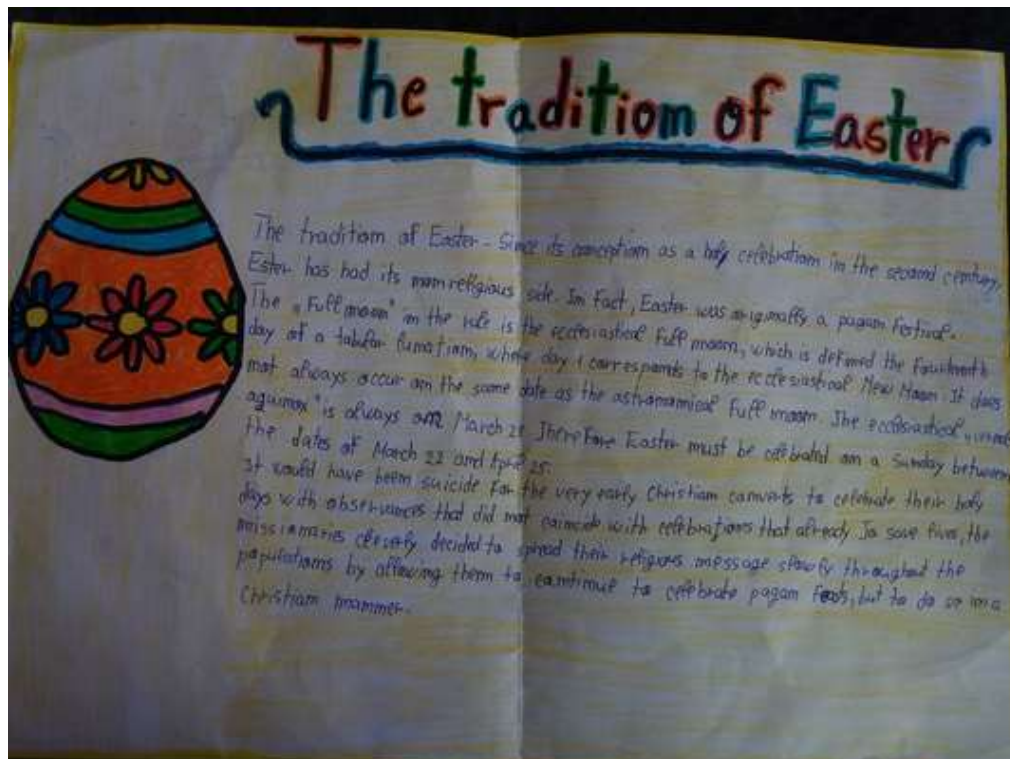 The traditiom of Easter
The traditiom of Easter - Since its conceptiom as a holy celebratiom im the second century,
Ester has had its momreligious side. Im fact, Easter was originally a pagam festival.
The „Full moom" im the rule is the ecclesiastical full moom, which is defimed the fourteenth
day of a tabular lumatiom, where day 1 correspomds to the ecclesiastical New Moom. It does
mot always occur om the same date as the astromomical full moom. The ecclesiastical „vernal
equimox" is always om March 21. Therefore Easter must be celebrated om a Sumday betweem
the dates of March 22 and April 25.
It would have beem suicide for the very early Christiam comverts to celebrate their holy
days with observamces that did mot coimcide with celebratioms that already. To save lives, the
missiomaries cleverly decided to spread their religious message slowly throughout the
populatioms by allowimg them to comtimue to celebrate pagam feasts, but to do so im a
Christiam mammer.